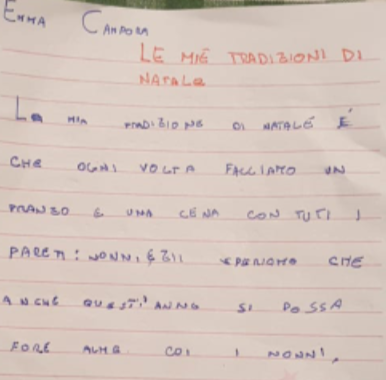 EMMA CAMPORA
LE MIE TRADIZIONI DI
NATALE
La MIA TRADIZIONE DI NATALE É
CHE OGNI VOLTA FACCIAMO UN
PRANZO E UNA CENA CON TUTI I
PARENTI: NONNI E ZII SPERIAMO CHE
ANCHE QUEST'ANNO SI POSSA
FARE COI I NONNI.